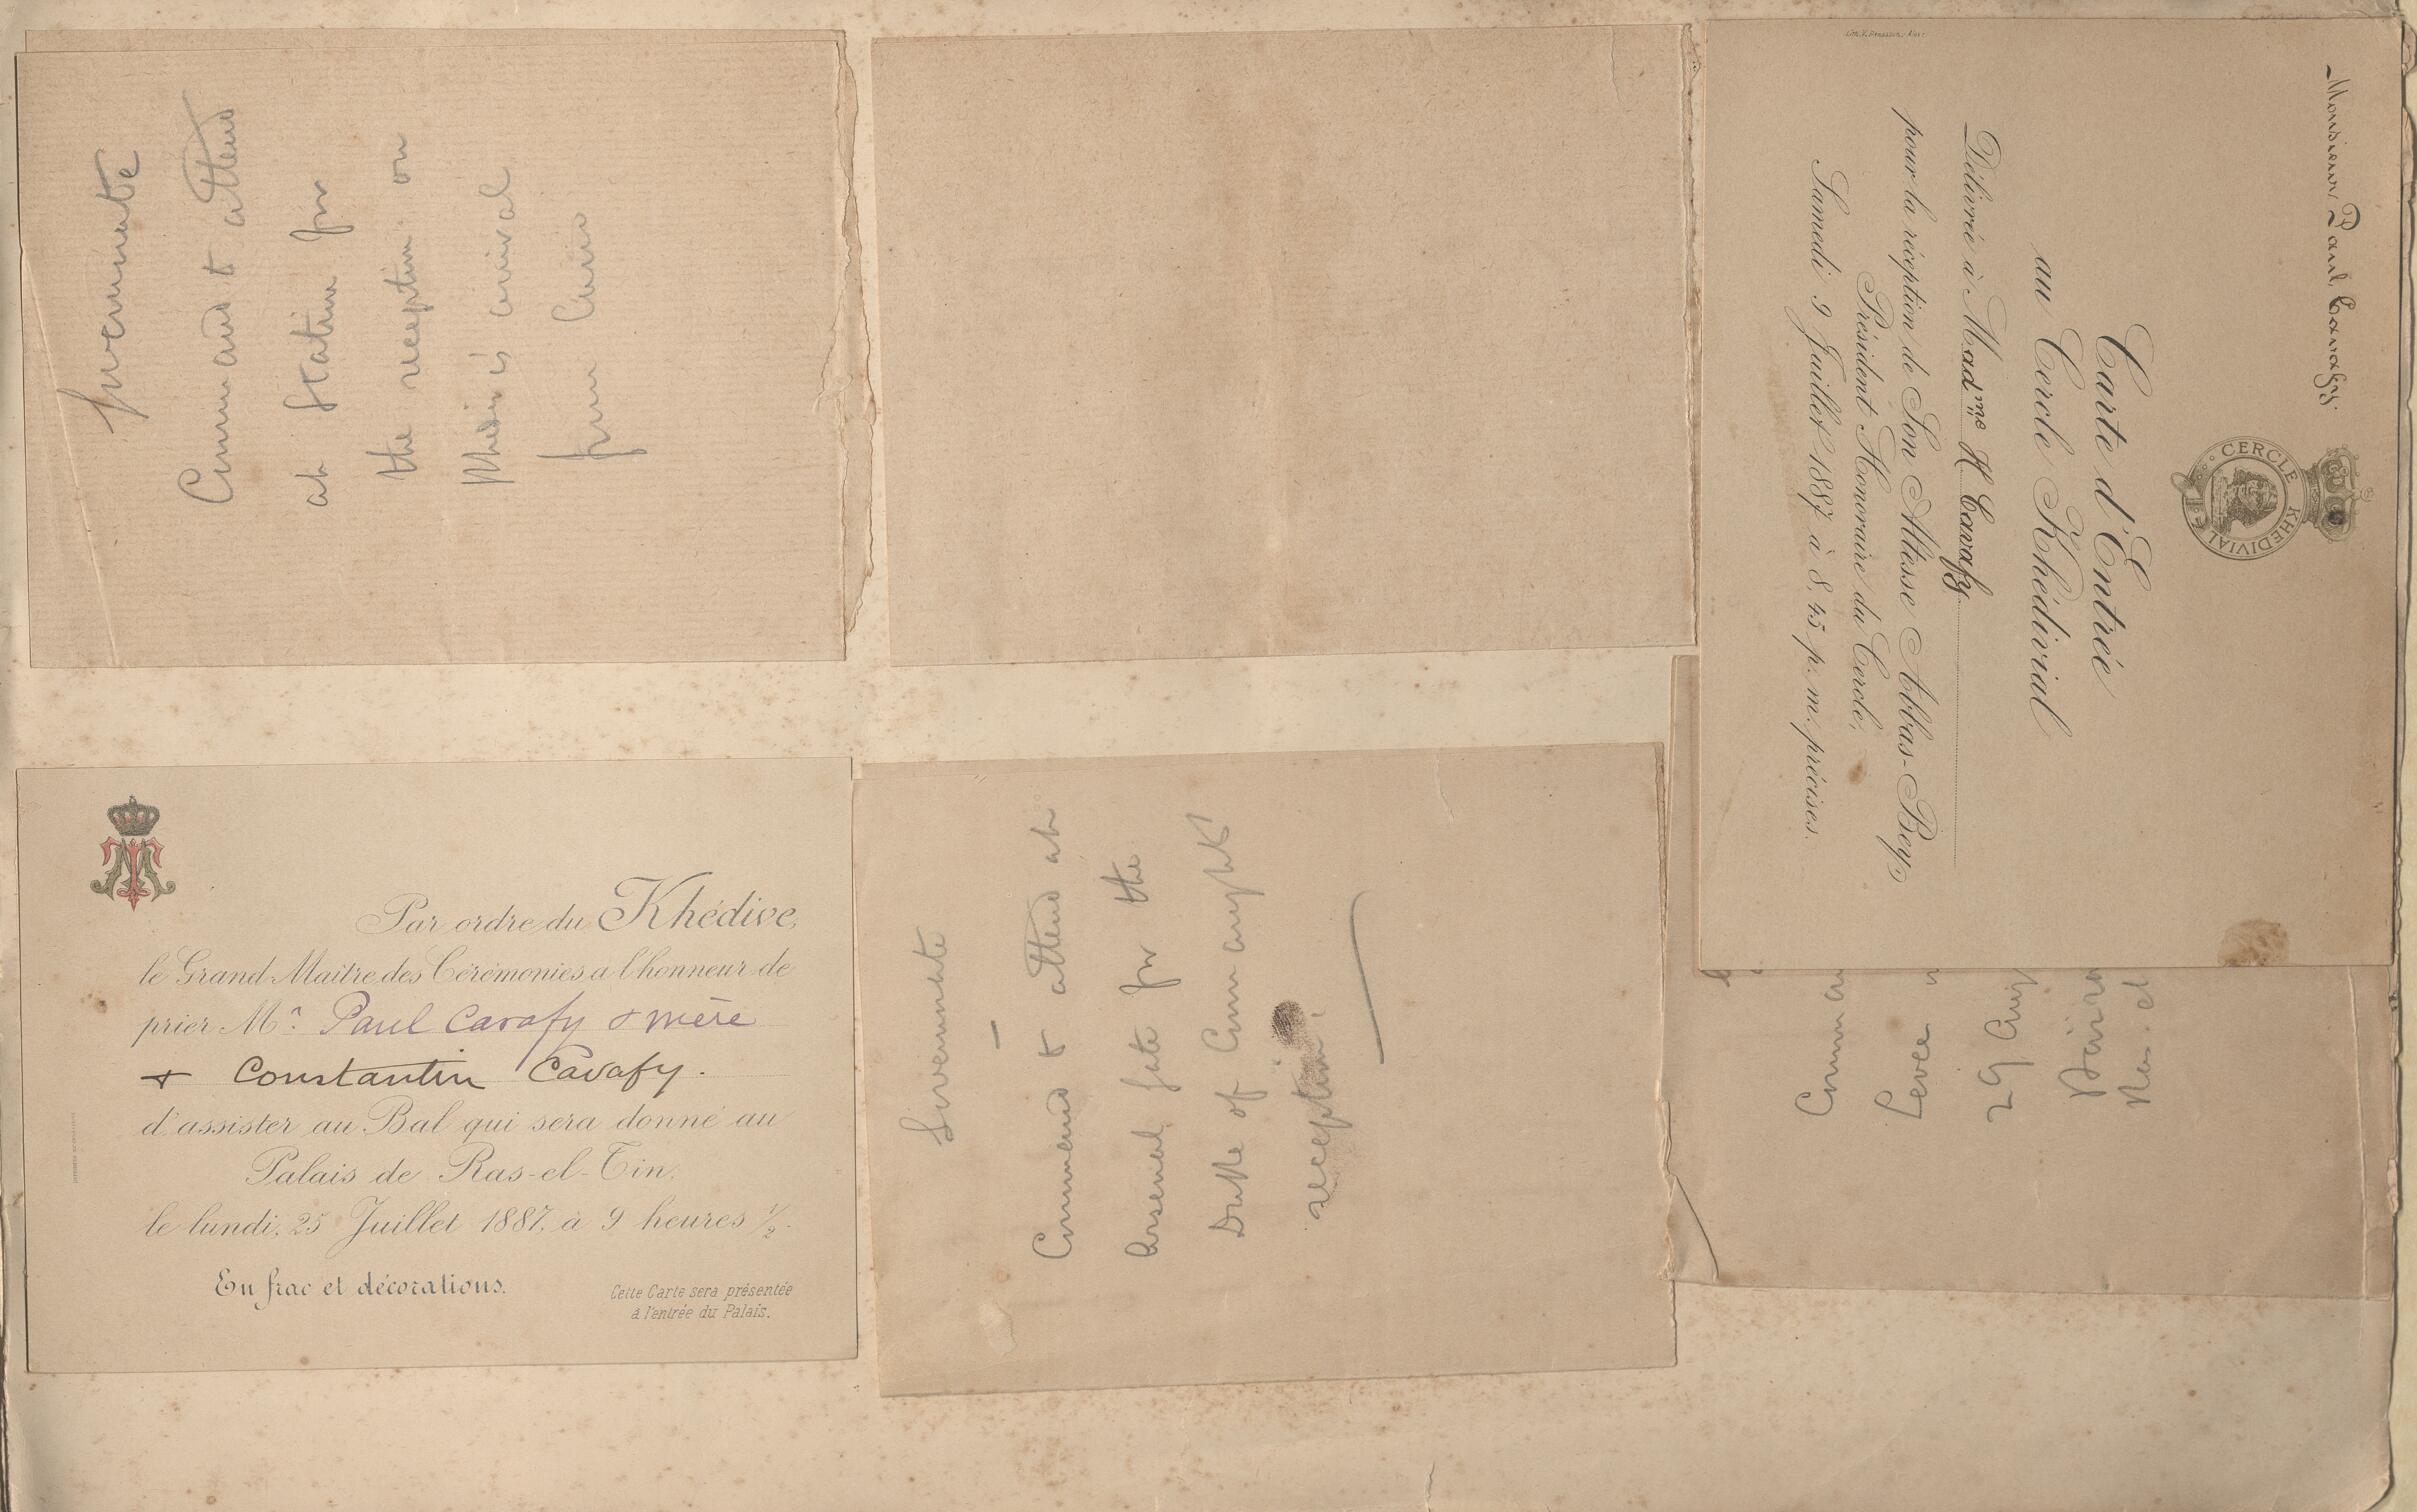 Command to attend
at Station for
the reception on
arrival
from Cairo
Par ordre du Khédive,
le Grand Maître des Cérémonies a l'honneur de
prier Mr. Paul Cavafy & mère
& Constantin Cavafy.
d'assister au Bal qui sera donné au
Palais de Ras-el-Tin,
le lundi, 25 Juillet 1887, à 9 heures 1/2.
En frac et décorations.
Cette Carte sera présentée
à l'entrée du Palais.
Command to attend at
Arsenal Gate for the
Duke of Connaught's
reception.
Monsieur Paul Cavafy.
CERCLE KHEDIVIAL
Carte d'Entrée
au Cercle Khédivial
Délivrée à Madme H Cavafy
pour la réception de Son Altesse Abbas-Bey,
Président Honoraire du Cercle,
Samedi 9 Juillet 1887 à 8,45 p. m. précises.
Levee
29